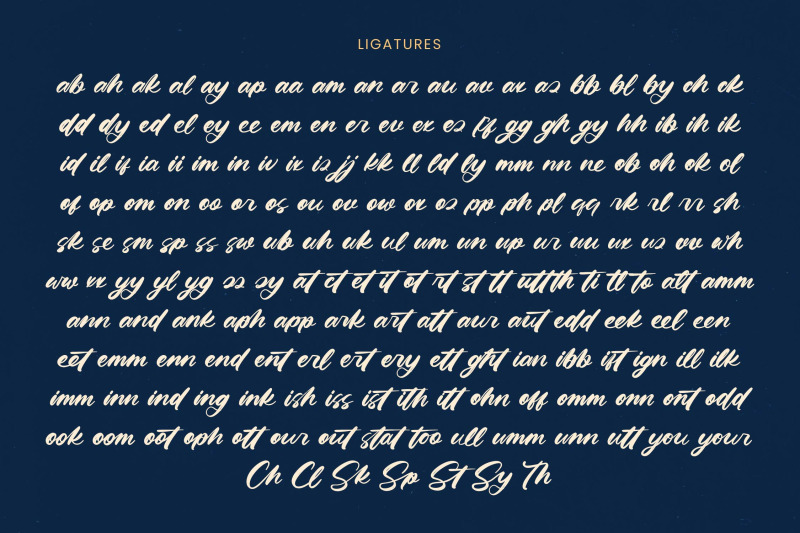 LIGATURES
ab ah ak al ay ap aa am an ar au av ax az bb bl by ch ck
dd dy ed el ey ee em en er ev ex ez ff gg gh gy hh ib ih ik
id il if ia ii im in iv ix iz jj kk ll ld ly mm nn ne ob oh ok ol
of op om on oo or os ou ov ow ox oz pp ph pl qq rk rl rr sh
sk se sm sp ss sw ub uh uk ul um un up ur uu ux uz vv wh
ww xx yy yl yg zz zy at ct et it ot rt st tt utt tth ti tl to alt amm
ann and ank aph app ark art att aur aut edd eek eel een
eet emm enn end ent erl ert ery ett ght ian ibb ift ign ill ilk
imm inn ind ing ink ish iss ist ith itt ohn off omm onn ont odd
ook oom oot oph ott our out stat too ull umm unn utt you your
Ch Cl Sk Sp St Sy Th